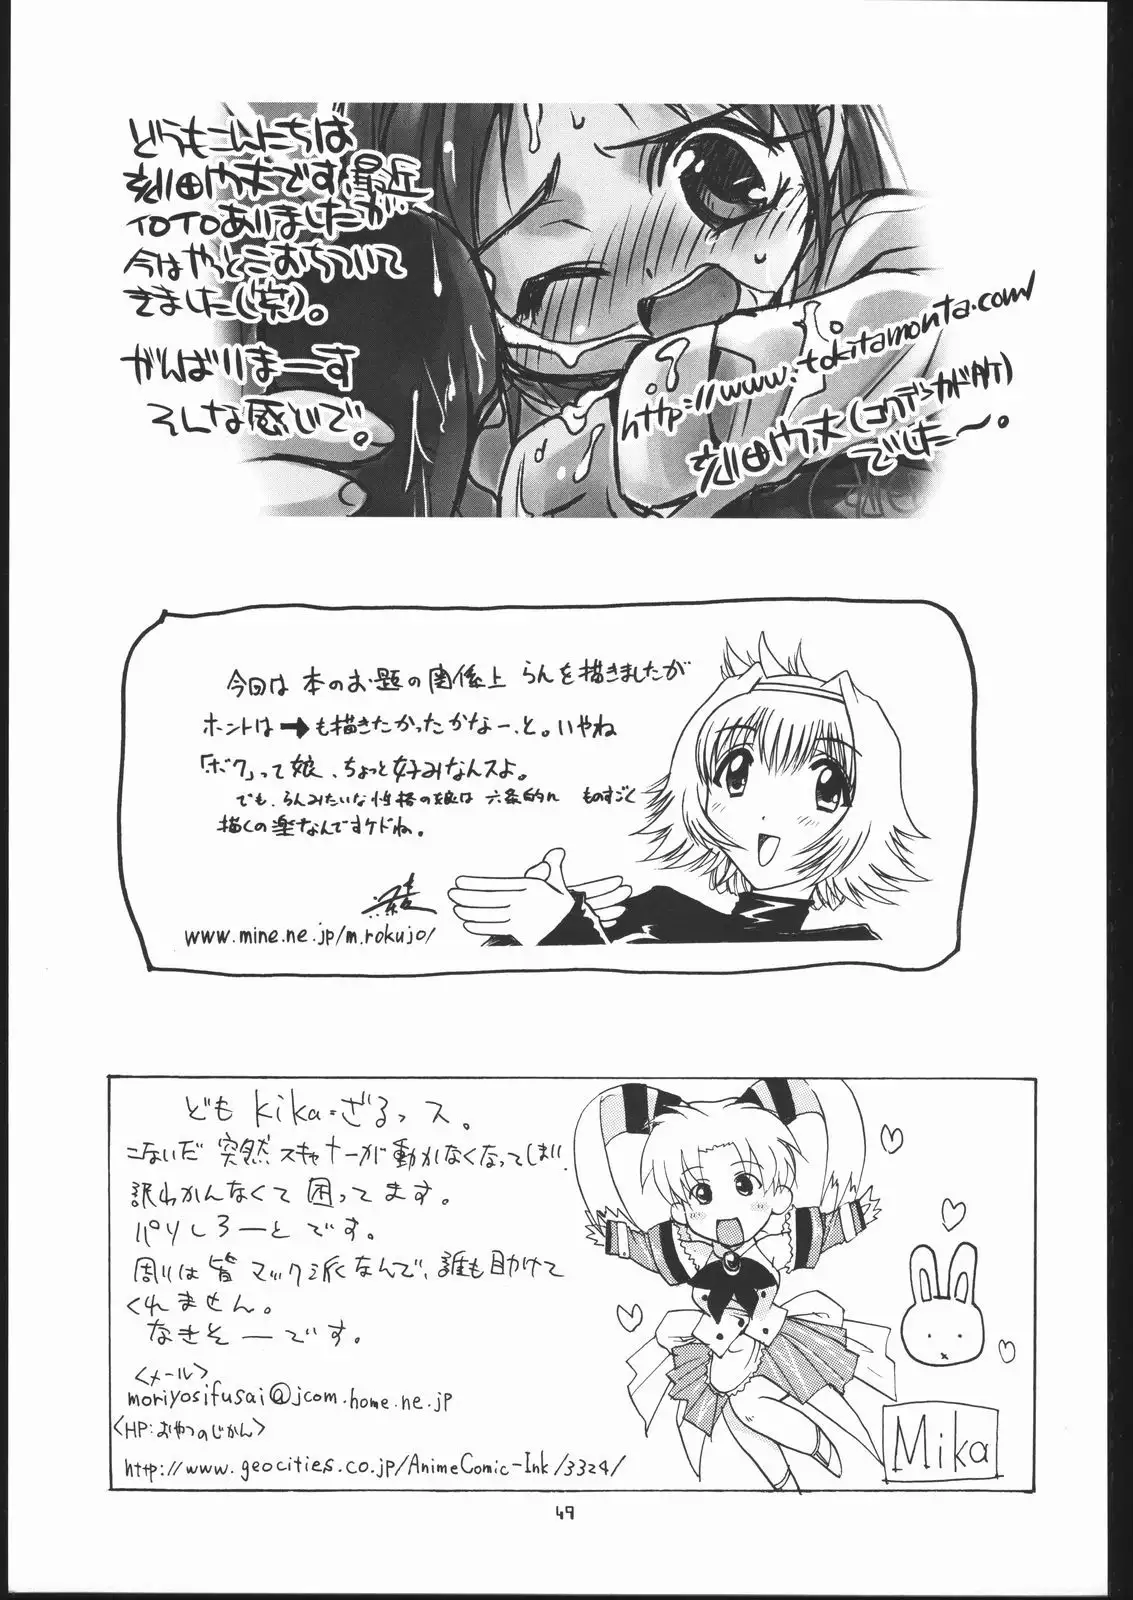 どうもこんにちは
刻田门丈です。最近
イロイロありましたが
今はやっとこおちついて
きました(笑)。
がんばりまーす
そんな感じで。
http://www.tokitamonta.com/
刻田门丈(コクデンガ丈)
でしたー。
今回は 本のお題の関係上 らんを描きましたが
ホントは➡も描きたかったかなー、と。いやね
「ボク」って娘、ちょっと好みなんスよ。
でも、らんみたいな性格の娘は 六条的に ものすごく
描くの楽なんですケドね。
www.mine.ne.jp/m.rokujo/
ども kika=ざるっス。
こないだ 突然 スキャナーが動かなくなってしまい、
訳わかんなくて 困ってます。
パリしろーと です。
周りは皆 マック派なんで、誰も助けて
くれません。
なきそーです。
<メール>
moriyosifusai@jcom.home.ne.jp
<HP:おやつのじかん>
http://www.geocities.co.jp/AnimeComic-Ink/3324/
Mika
49